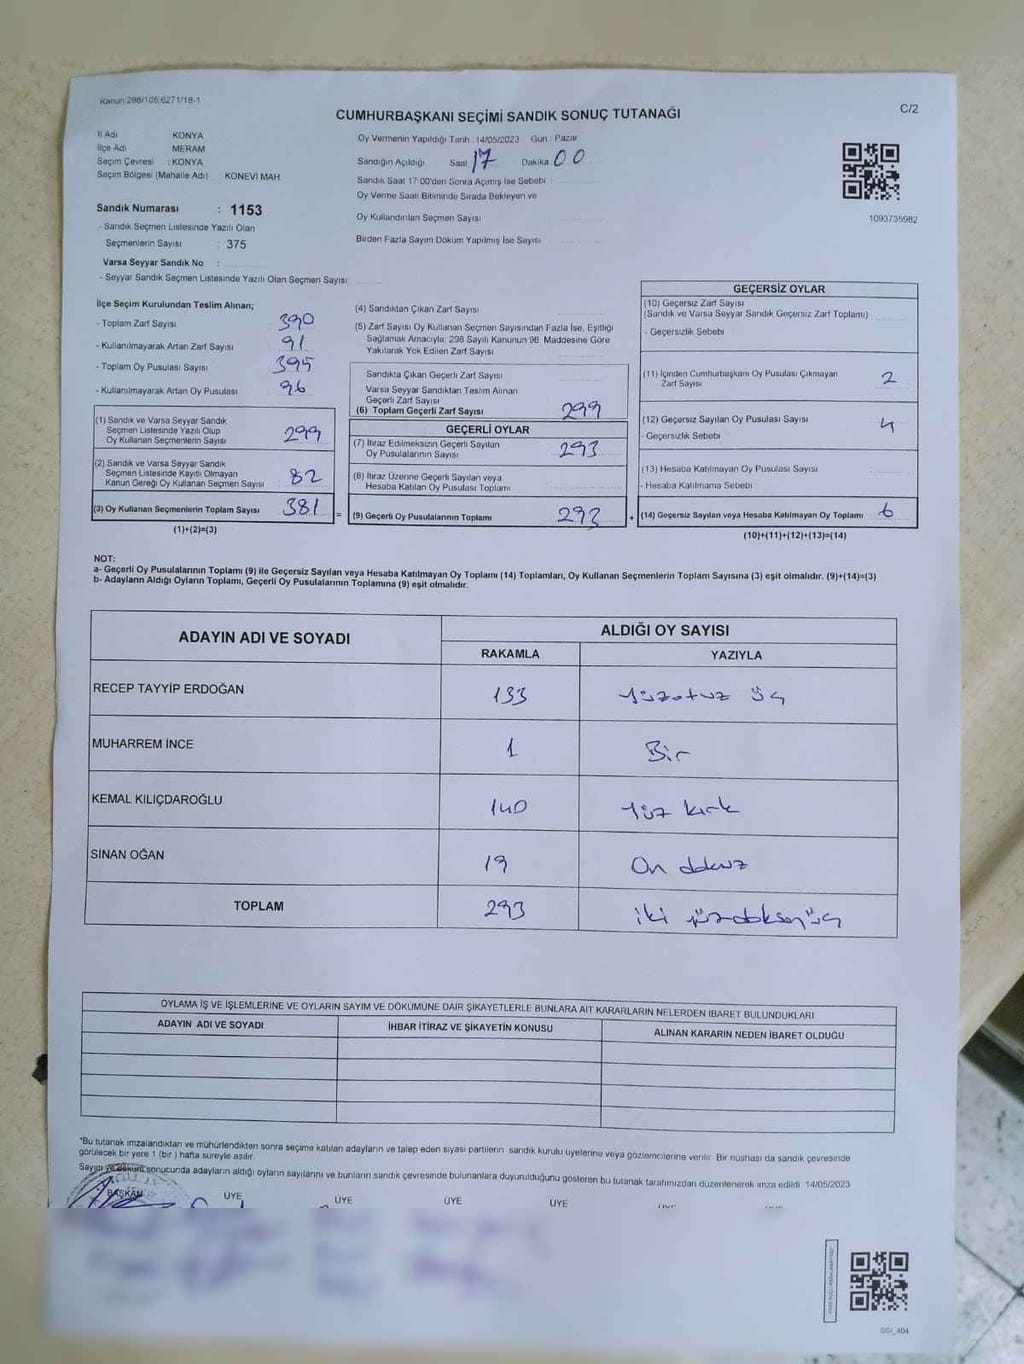 Kanun:298/105;6271/18-1
CUMHURBAŞKANI SEÇİMİ SANDIK SONUÇ TUTANAĞI
C/2
İl Adı KONYA
İlçe Adı MERAM
Seçim Çevresi : KONYA
Seçim Bölgesi (Mahalle Adı) KONEVİ MAH
Oy Vermenin Yapıldığı Tarih 14/05/2023 Gün : Pazar
Sandığın Açıldığı Saat 17 Dakika 00
Sandık Saat 17:00'den Sonra Açılmış İse Sebebi
Oy Verme Saati Bitiminde Sırada Bekleyen ve
Oy Kullandırılan Seçmen Sayısı
Birden Fazla Sayım Döküm Yapılmış İse Sayısı
1093735982
Sandık Numarası : 1153
- Sandık Seçmen Listesinde Yazılı Olan
Seçmenlerin Sayısı : 375
Varsa Seyyar Sandık No :
- Seyyar Sandık Seçmen Listesinde Yazılı Olan Seçmen Sayısı
İlçe Seçim Kurulundan Teslim Alınan;
- Toplam Zarf Sayısı 390
- Kullanılmayarak Artan Zarf Sayısı 91
- Toplam Oy Pusulası Sayısı 395
- Kullanılmayarak Artan Oy Pusulası 96
(1) Sandık ve Varsa Seyyar Sandık
Seçmen Listesinde Yazılı Olup
Oy Kullanan Seçmenlerin Sayısı 299
(2) Sandık ve Varsa Seyyar Sandık
Seçmen Listesinde Kayıtlı Olmayan
Kanun Gereği Oy Kullanan Seçmen Sayısı 82
(3) Oy Kullanan Seçmenlerin Toplam Sayısı 381
(1)+(2)=(3)
(4) Sandıktan Çıkan Zarf Sayısı
(5) Zarf Sayısı Oy Kullanan Seçmen Sayısından Fazla İse, Eşitliği
Sağlamak Amacıyla; 298 Sayılı Kanunun 98. Maddesine Göre
Yakılarak Yok Edilen Zarf Sayısı
Sandıkta Çıkan Geçerli Zarf Sayısı
Varsa Seyyar Sandıktan Teslim Alınan
Geçerli Zarf Sayısı
(6) Toplam Geçerli Zarf Sayısı 299
GEÇERLİ OYLAR
(7) İtiraz Edilmeksizin Geçerli Sayılan
Oy Pusulalarının Sayısı 293
(8) İtiraz Üzerine Geçerli Sayılan veya
Hesaba Katılan Oy Pusulası Toplamı
= (9) Geçerli Oy Pusulalarının Toplamı 293
GEÇERSİZ OYLAR
(10) Geçersiz Zarf Sayısı
(Sandık ve Varsa Seyyar Sandık Geçersiz Zarf Toplamı)
- Geçersizlik Sebebi
(11) İçinden Cumhurbaşkanı Oy Pusulası Çıkmayan
Zarf Sayısı 2
(12) Geçersiz Sayılan Oy Pusulası Sayısı 4
- Geçersizlik Sebebi
(13) Hesaba Katılmayan Oy Pusulası Sayısı
- Hesaba Katılmama Sebebi
+ (14) Geçersiz Sayılan veya Hesaba Katılmayan Oy Toplamı 6
(10)+(11)+(12)+(13)=(14)
NOT:
a- Geçerli Oy Pusulalarının Toplamı (9) ile Geçersiz Sayılan veya Hesaba Katılmayan Oy Toplamı (14) Toplamları, Oy Kullanan Seçmenlerin Toplam Sayısına (3) eşit olmalıdır. (9)+(14)=(3)
b- Adayların Aldığı Oyların Toplamı, Geçerli Oy Pusulalarının Toplamına (9) eşit olmalıdır.
ADAYIN ADI VE SOYADI
ALDIĞI OY SAYISI
RAKAMLA YAZIYLA
RECEP TAYYİP ERDOĞAN 133 Yüzotuz üç
MUHARREM İNCE 1 Bir
KEMAL KILIÇDAROĞLU 140 Yüz kırk
SİNAN OĞAN 19 On dokuz
TOPLAM 293 iki yüzdoksanüç
OYLAMA İŞ VE İŞLEMLERİNE VE OYLARIN SAYIM VE DÖKÜMÜNE DAİR ŞİKAYETLERLE BUNLARA AİT KARARLARIN NELERDEN İBARET BULUNDUKLARI
ADAYIN ADI VE SOYADI İHBAR İTİRAZ VE ŞİKAYETİN KONUSU ALINAN KARARIN NEDEN İBARET OLDUĞU
*Bu tutanak imzalandıktan ve mühürlendikten sonra seçime katılan adayların ve talep eden siyasi partilerin sandık kurulu üyelerine veya gözlemcilerine verilir. Bir nüshası da sandık çevresinde
görülecek bir yere 1 (bir) hafta süreyle asılır.
Sayım ve döküm sonucunda adayların aldığı oyların sayılarını ve bunların sandık çevresinde bulunanlara duyurulduğunu gösteren bu tutanak tarafımızdan düzenlenerek imza edildi. 14/05/2023
BAŞKAN ÜYE ÜYE ÜYE ÜYE
SSI_404